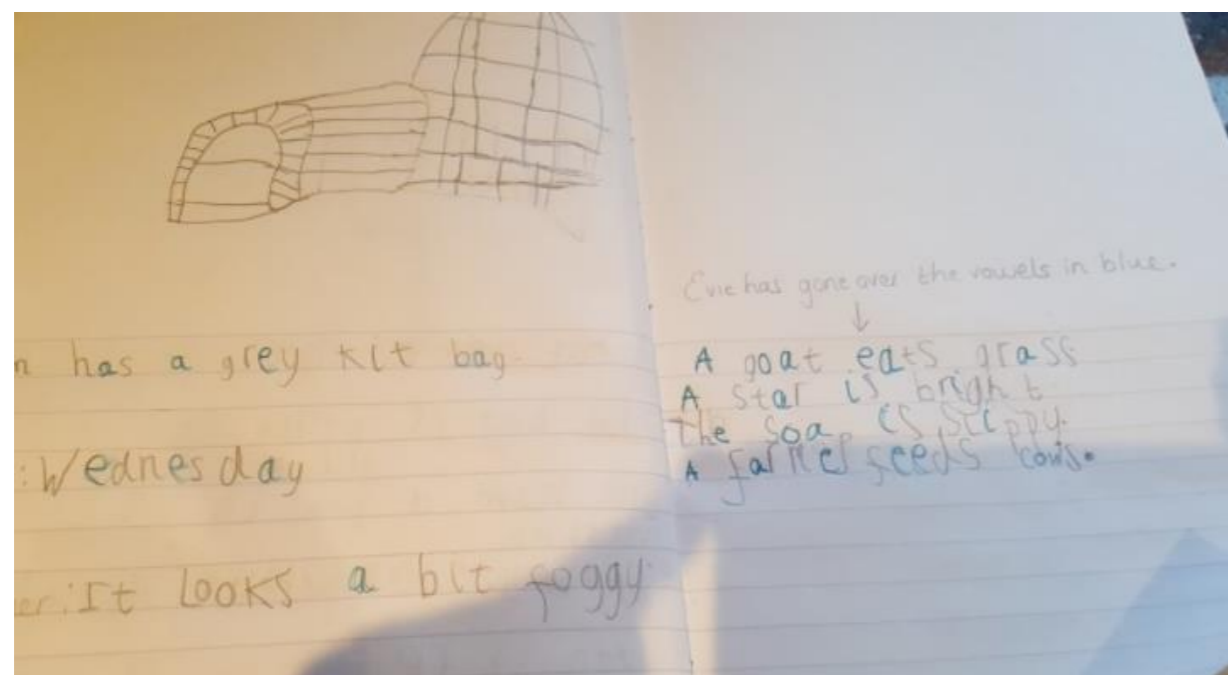 n has a grey kit bag.
: Wednesday
er: It looks a bit foggy
Evie has gone over the vowels in blue.
A goat eats grass
A star is bright
the soap is slippy.
A farmer feeds cows.